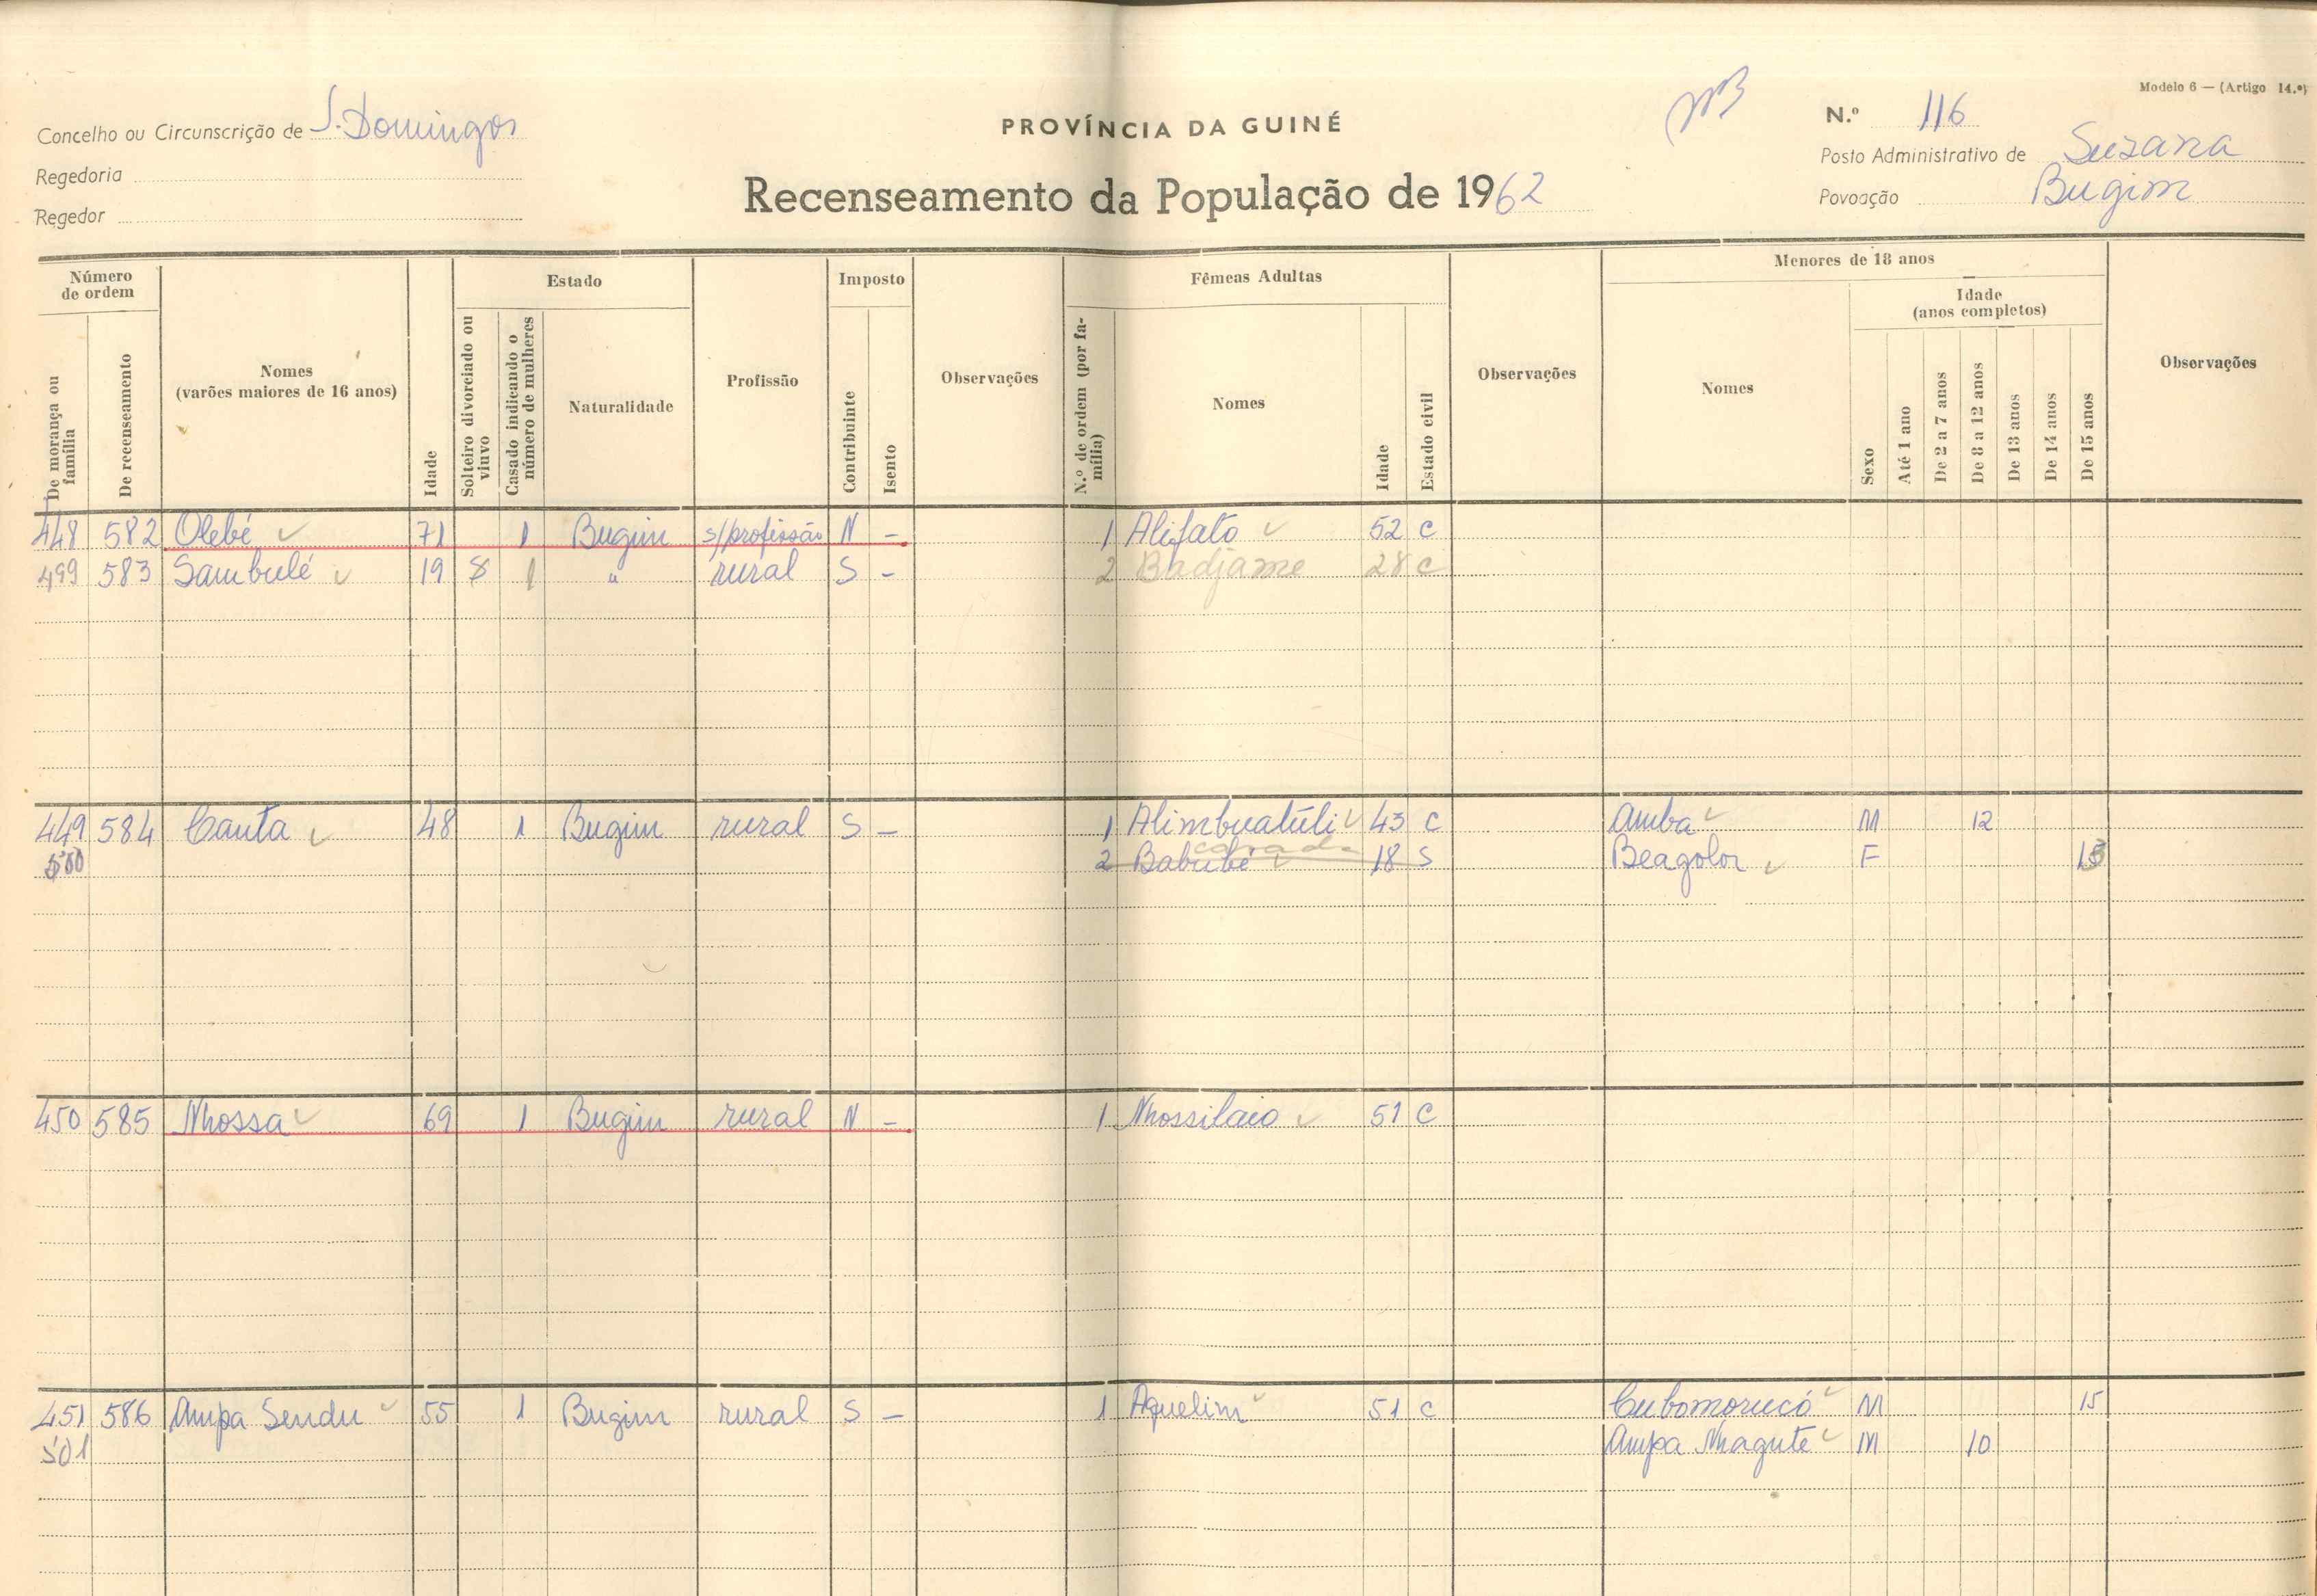 Modelo 6 — (Artigo 14.º)
Concelho ou Circunscrição de S. Domingos
PROVÍNCIA DA GUINÉ
N.º 116
Regedoria
Posto Administrativo de Suzana
Regedor
Recenseamento da População de 1962
Povoação Bugim
Número de ordem
Estado
Imposto
Fêmeas Adultas
Menores de 18 anos
Idade (anos completos)
De morança ou família
De recenseamento
Nomes (varões maiores de 16 anos)
Idade
Solteiro divorciado ou viuvo
Casado indicando o número de mulheres
Naturalidade
Profissão
Contribuinte
Isento
Observações
N.º de ordem (por família)
Nomes
Idade
Estado civil
Observações
Nomes
Sexo
Até 1 ano
De 2 a 7 anos
De 8 a 12 anos
De 13 anos
De 14 anos
De 15 anos
Observações
448 582 Olebé 71 1 Bugim s/profissão N — 1 Alifato 52 C
499 583 Sambulé 19 S 1 " rural S - 2 Badjame 28 C
449 584 Canta 48 1 Bugim rural S — 1 Alimbuatúli 43 C Amba M 12
500 2 Babubé casada 18 S Beagolor F
450 585 Nhossa 69 1 Bugim rural N — 1 Nhossilaio 51 C
451 586 Ampa Sendu 55 1 Bugim rural S — 1 Aquelim 51 C Cubomorucó M 15
501 Ampa Nhagute M 10